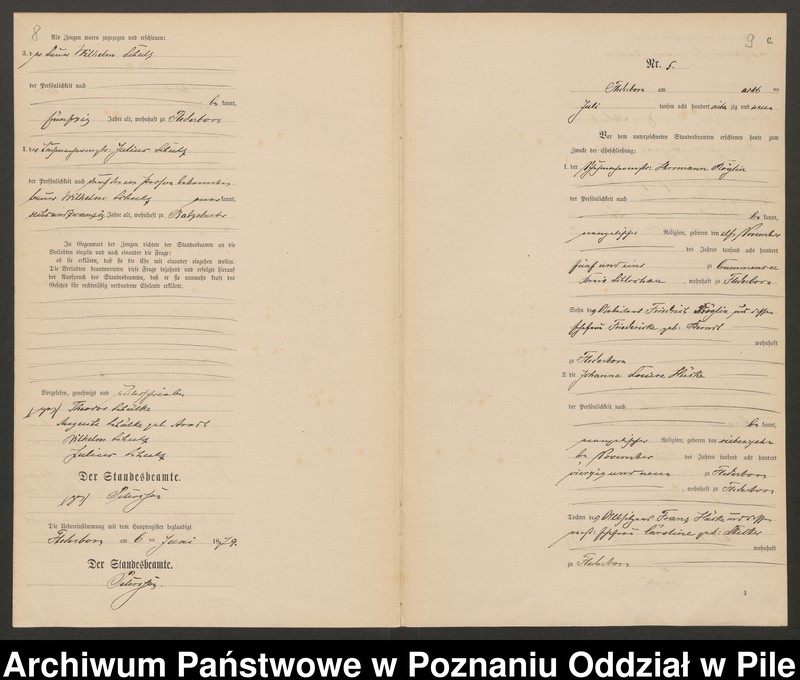 8
Als Zeugen waren zugezogen und erschienen:
3. der Bauer Wilhelm Schulz
der Persönlichkeit nach
be kannt,
fünfzig Jahre alt, wohnhaft zu Flederborn
4. der Julius Schulz
der Persönlichkeit nach durch den von Person bekannten
Bauer Wilhelm Schulz
Jahre alt, wohnhaft zu Ratzebuhr
In Gegenwart der Zeugen richtete der Standesbeamte an die
Verlobten einzeln und nach einander die Frage:
ob sie erklären, daß sie die Ehe mit einander eingehen wollen.
Die Verlobten beantworteten diese Frage bejahend und erfolgte hierauf
der Ausspruch des Standesbeamten, daß er sie nunmehr kraft des
Gesetzes für rechtmäßig verbundene Eheleute erkläre.
Vorgelesen, genehmigt und unterschrieben
Theodor Schülke
Auguste Schülke geb. Arndt
Wilhelm Schulz
Julius Schulz
Der Standesbeamte.
Die Uebereinstimmung mit dem Hauptregister beglaubigt
Flederborn am 6 ten Juni 1879.
Der Standesbeamte.
9 C.
Nr. 5.
Flederborn am acht en
Juli tausend acht hundert sieben zig und neun
Vor dem unterzeichneten Standesbeamten erschienen heute zum
Zwecke der Eheschließung:
1. der Schuhmachermstr. Hermann Röglin
der Persönlichkeit nach
be kannt,
evangelischer Religion, geboren den elften November
des Jahres tausend acht hundert
fünf und zu
Kreis Schlochau, wohnhaft zu Flederborn
Sohn des Friedrich Röglin und dessen
Ehefrau Friederike geb.
wohnhaft
zu Flederborn
2. die Johanna Louise Hüske
der Persönlichkeit nach
be kannt,
evangelischer Religion, geboren den siebenzehn
ten November des Jahres tausend acht hundert
vierzig und neun zu Flederborn
, wohnhaft zu Flederborn
Tochter des Altsitzers Franz Hüske und dessen
Ehefrau Caroline geb.
wohnhaft
zu Flederborn
4
Archiwum Państwowe w Poznaniu Oddział w Pile